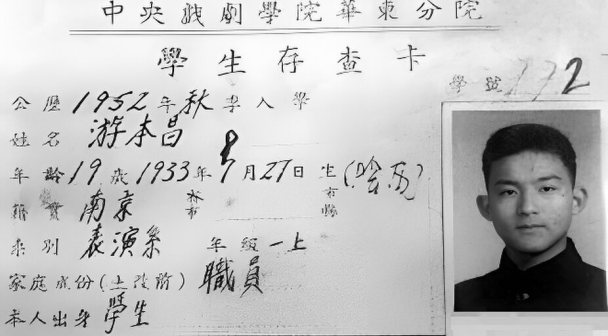 中央戏劇學院華東分院
學生存查卡
學號 112
公曆1952年秋季入學
姓名 游本昌
年齡19歲1933年8月27日生
籍貫 南京 市縣
系別 表演系 年級一上
家庭成份(土改前) 職員
本人出身 學生